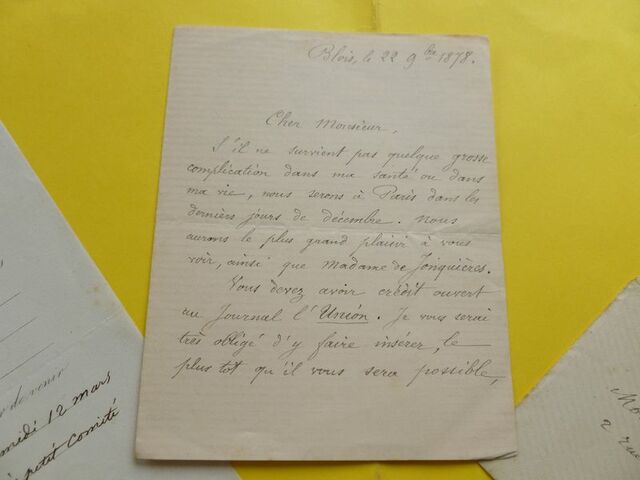 Blois, le 22 9bre 1878.
Cher Monsieur,
S'il ne survient pas quelque grosse
complication dans ma santé ou dans
ma vie, nous serons à Paris dans les
derniers jours de décembre. Nous
aurons le plus grand plaisir à vous
voir, ainsi que Madame de Jonquières.
Vous devez avoir crédit ouvert
au Journal l'Union. Je vous serai
très obligé d'y faire insérer, le
plus tot qu'il vous sera possible,
de venir
medi 12 mars
petit Comité
Mo
2 rue